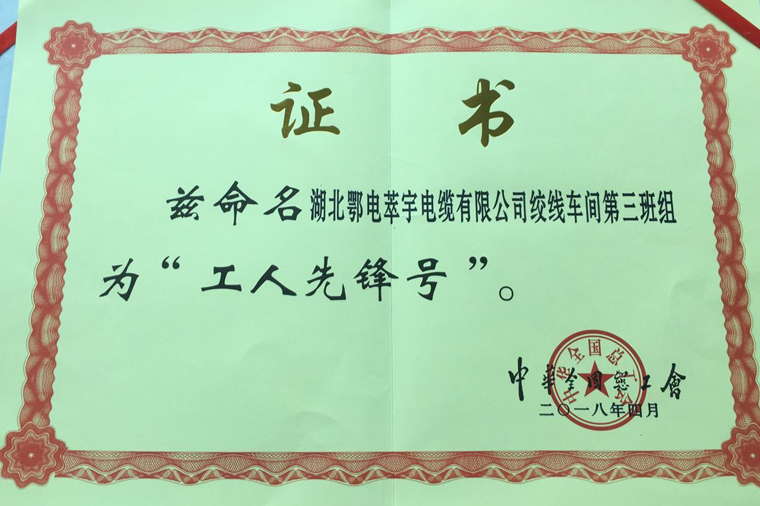 证 书
兹命名湖北鄂电萃宇电缆有限公司绞线车间第三班组
为“工人先锋号”。
中华全国总工会
中華全國總工會
二〇一八年四月